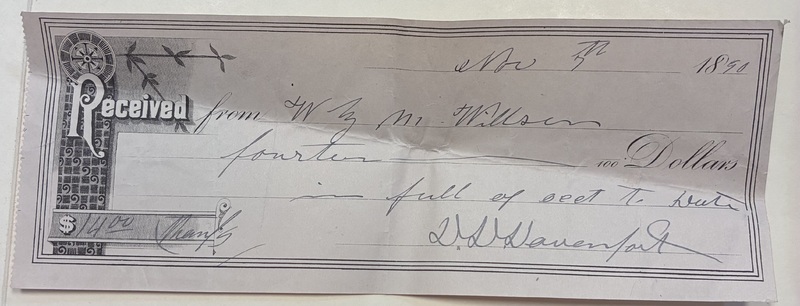 Nov 5th 1890
Received from W G M Willson
fourteen 100 Dollars
in full of acct to Date
$14.00 Thanks
D. D. Davenport